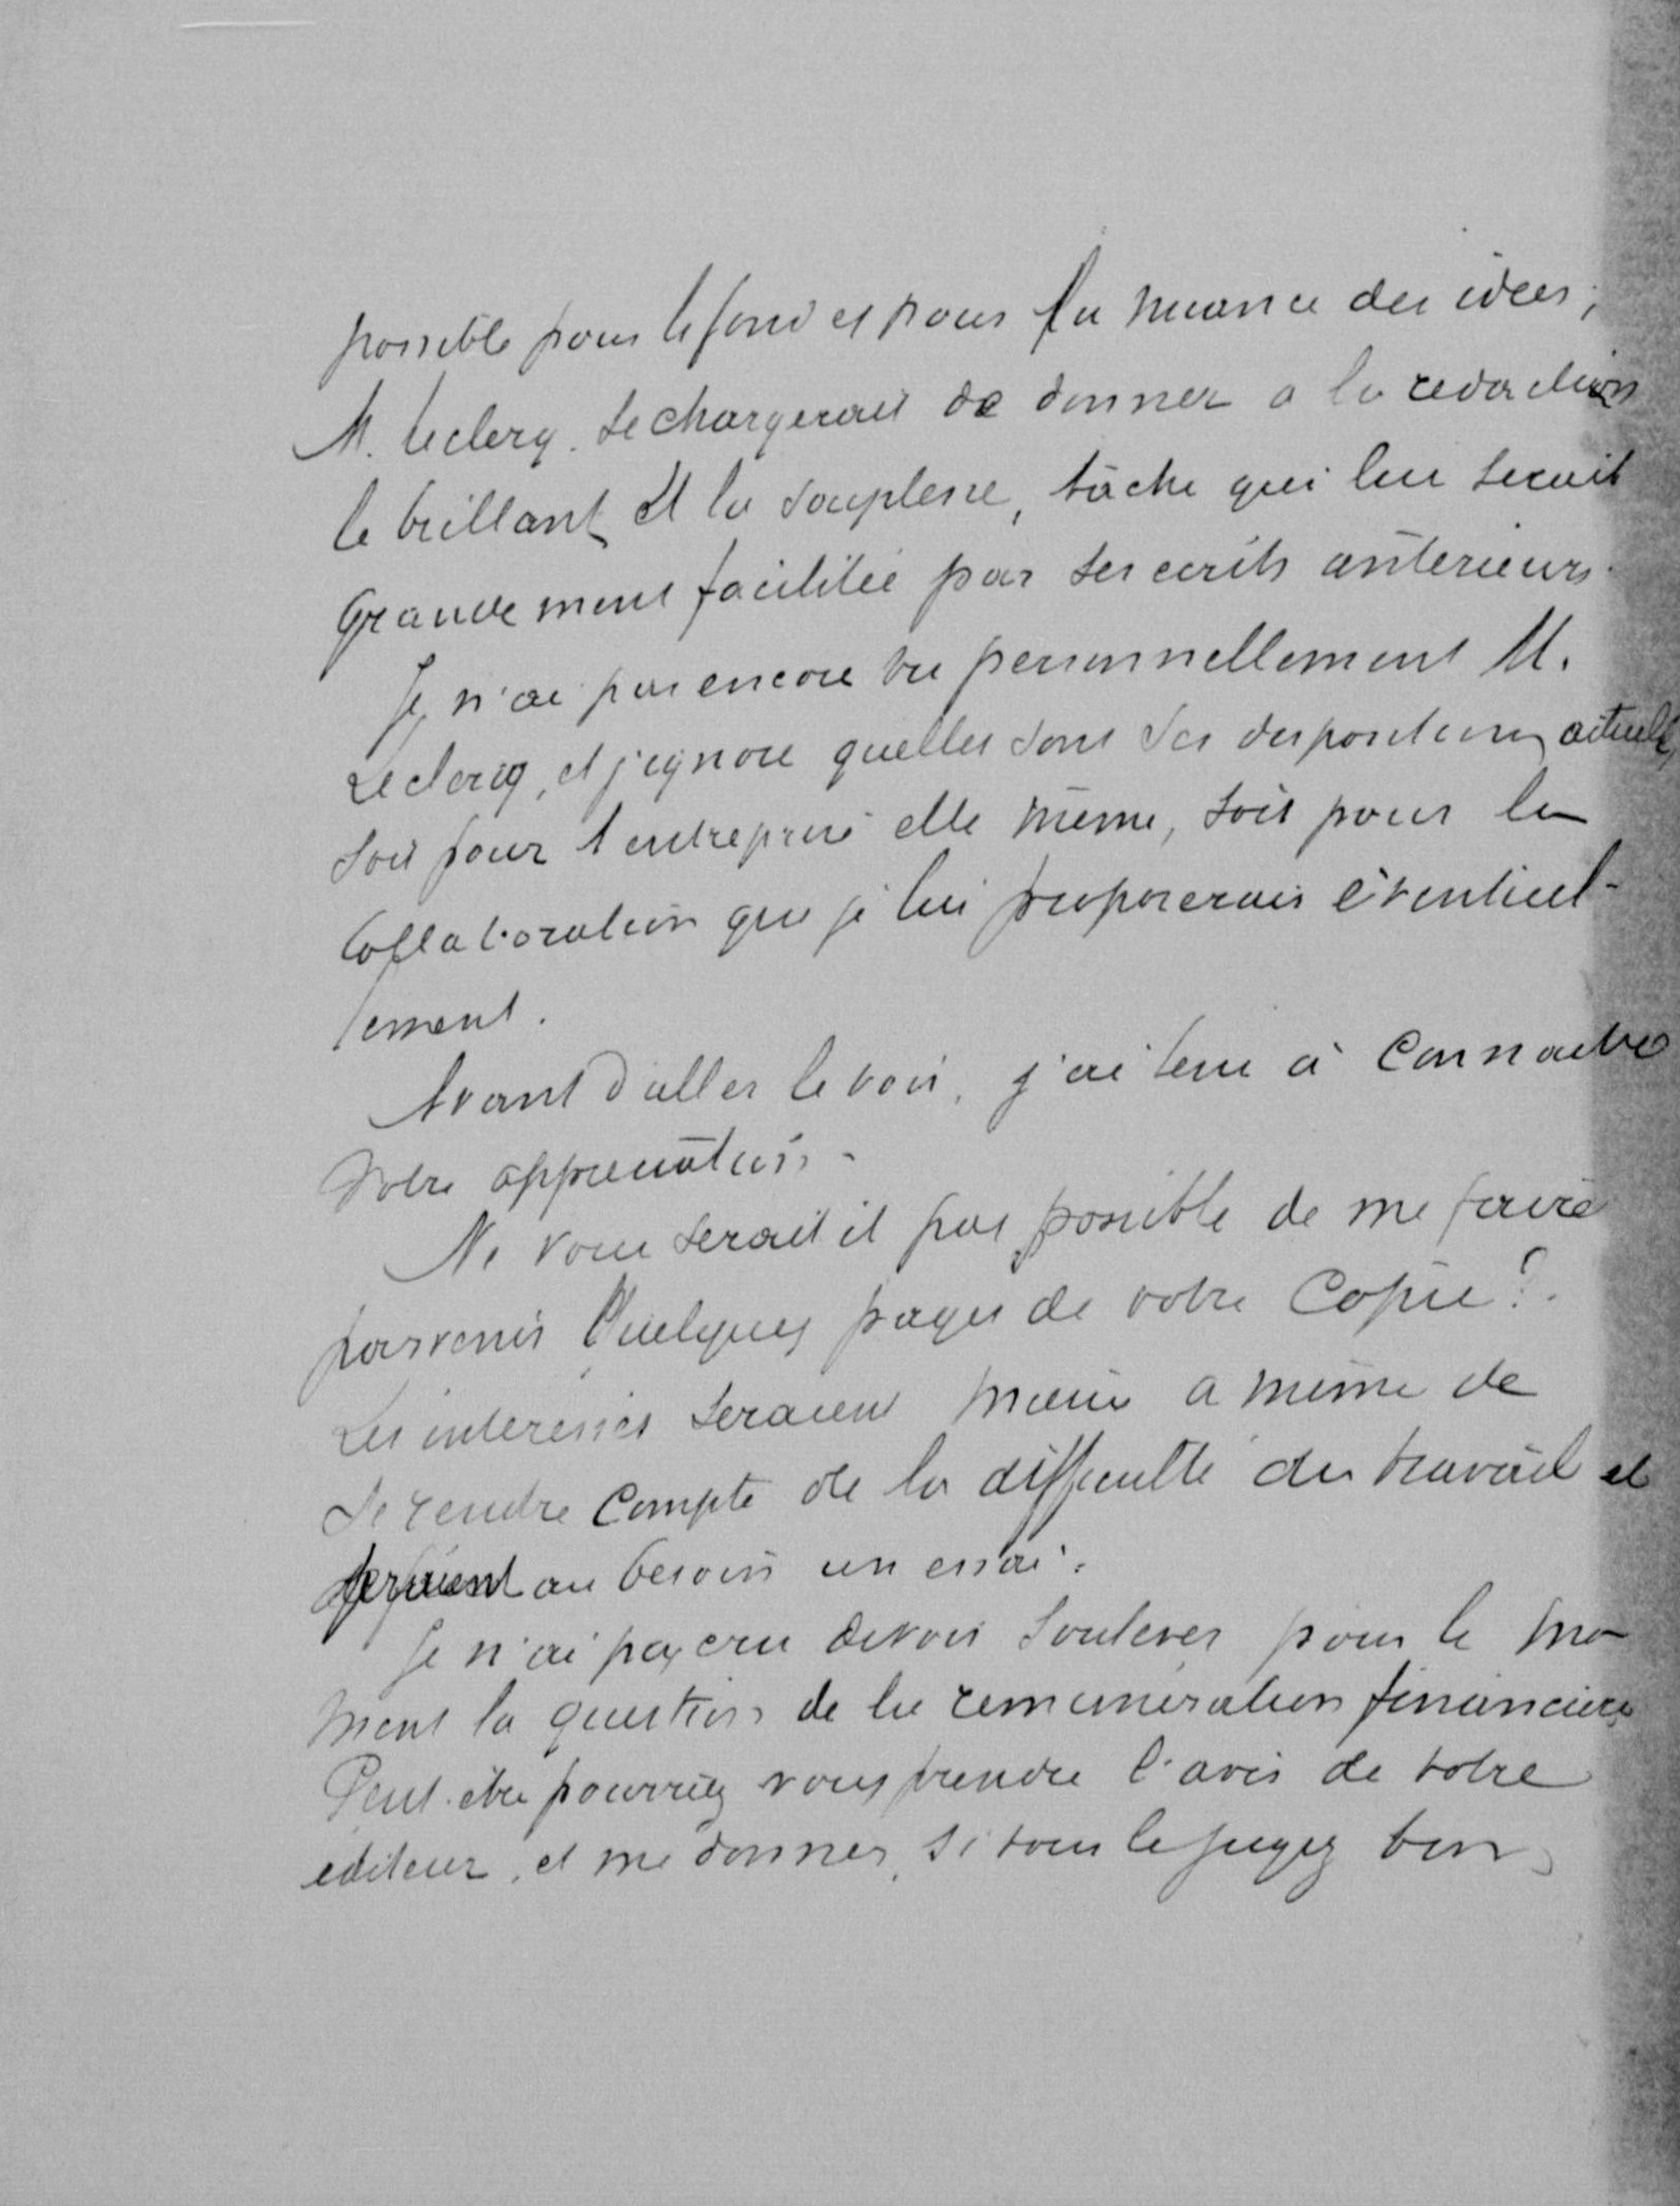 possible pour le fond et pour la nuance des idées;
M. Leclerq. se chargerait de donner a la redaction
le brillant et la souplesse, tâche qui lui serait
Grandement facilitée par ses ecrits antérieurs.
Je n'ai pas encore vu personnellement M.
Leclercq, et j'ignore quelles sont ses dispositions actuelles,
soit pour l'entreprise elle même, soit pour la
Collaboration que je lui proposerais éventuel-
lement.
Avant d'aller le voir, j'ai tenu à Connaitre
Votre appreciation.
Ne vous serait il pas possible de me faire
parvenir Quelques pages de votre Copie?.
Les interessés seraient mieux a même de
Se rendre Compte de la difficulté du travail et
feraient au besoin un essai.
Je n'ai pas cru devoir soulever pour le mo
ment la question de la remunération financière
Peut-être pourriez vous prendre l'avis de votre
editeur, et me donner, si vous le jugez bon,